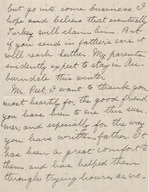 but go into some business I
hope and believe that eventually
Turkey will claim him. But
if you send in father's care it
will reach Luther. My parents
evidently expect to stay in Au-
burndale this winter.
Mr. Peet I want to thank you
most heartily for the good friend
you have been to me this sum-
mer, and especially for the way
you have written father. It
has been a great comfort to
them and have helped them
through trying hours, as we